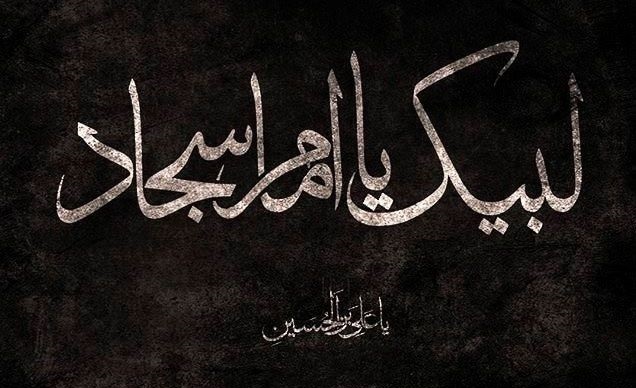 لبیک یا امام سجاد
یا عَلیَ بنَ الحُسَینِ